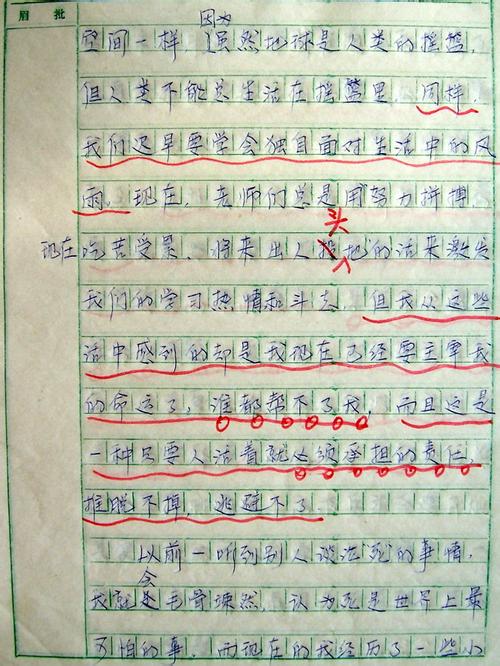 眉 批
因为
空间一样，虽然地球是人类的摇篮，
但人类不能总生活在摇篮里。同样，
我们迟早要学会独自面对生活中的风
雨。现在，老师们总是用努力拼搏，
头
现在吃苦受累，将来出人投地的话来激发
我们的学习热情和斗志。但我从这些
话中感到的却是我现在已经要主宰我
的命运了，谁都帮不了我，而且这是
一种只要人活着就必须承担的责任，
推脱不掉，逃避不了。
以前一听到别人谈论死的事情，
会
我就是毛骨悚然，认为死是世界上最
可怕的事。而现在的我经历了一些小